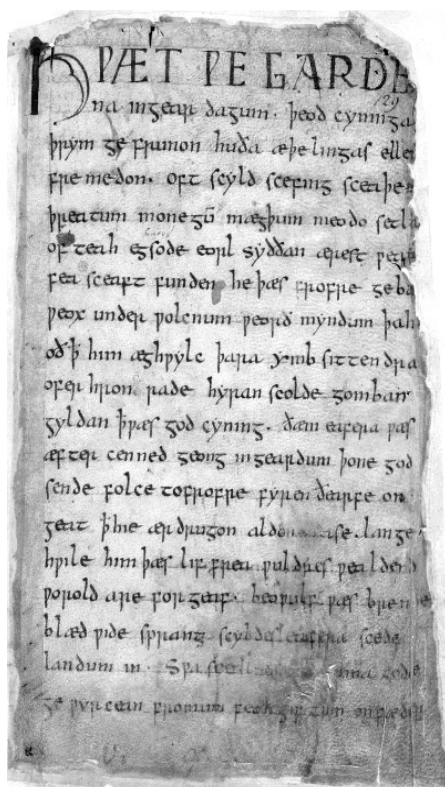 HǷÆT ǷE GARDE
na ingear dagum. þeod cyninga
þrym ge frunon huða æþelingas ellen
fremedon. oft scyld scefing sceaþen
þreatum monegū mægþum meodo setla
of teah egsode eorl syððan ærest ƿearð
fea sceaft funden he þæs frofre geba
ƿeox under ƿolcnum ƿeorð myndum þah
oð ꝥ him æghƿylc þara ymb sittendra
ofer hron rade hyran scolde gomban
gyldan ꝥ ƿæs god cyning. ðæm eafera ƿæs
æfter cenned geong ingeardum þone god
sende folce tofrofre fyren ðearfe on
geat ꝥ hie ær drugon aldor ase. lange
hƿile him þæs lif frea ƿuldres ƿealdend
ƿorold are for geaf. beoƿulf ƿæs breme
blæd ƿide sprang scyldes eafera scede
landum in. Sƿa sceal guma gode
ge ƿyrcean fromum feoh giftum on fæder